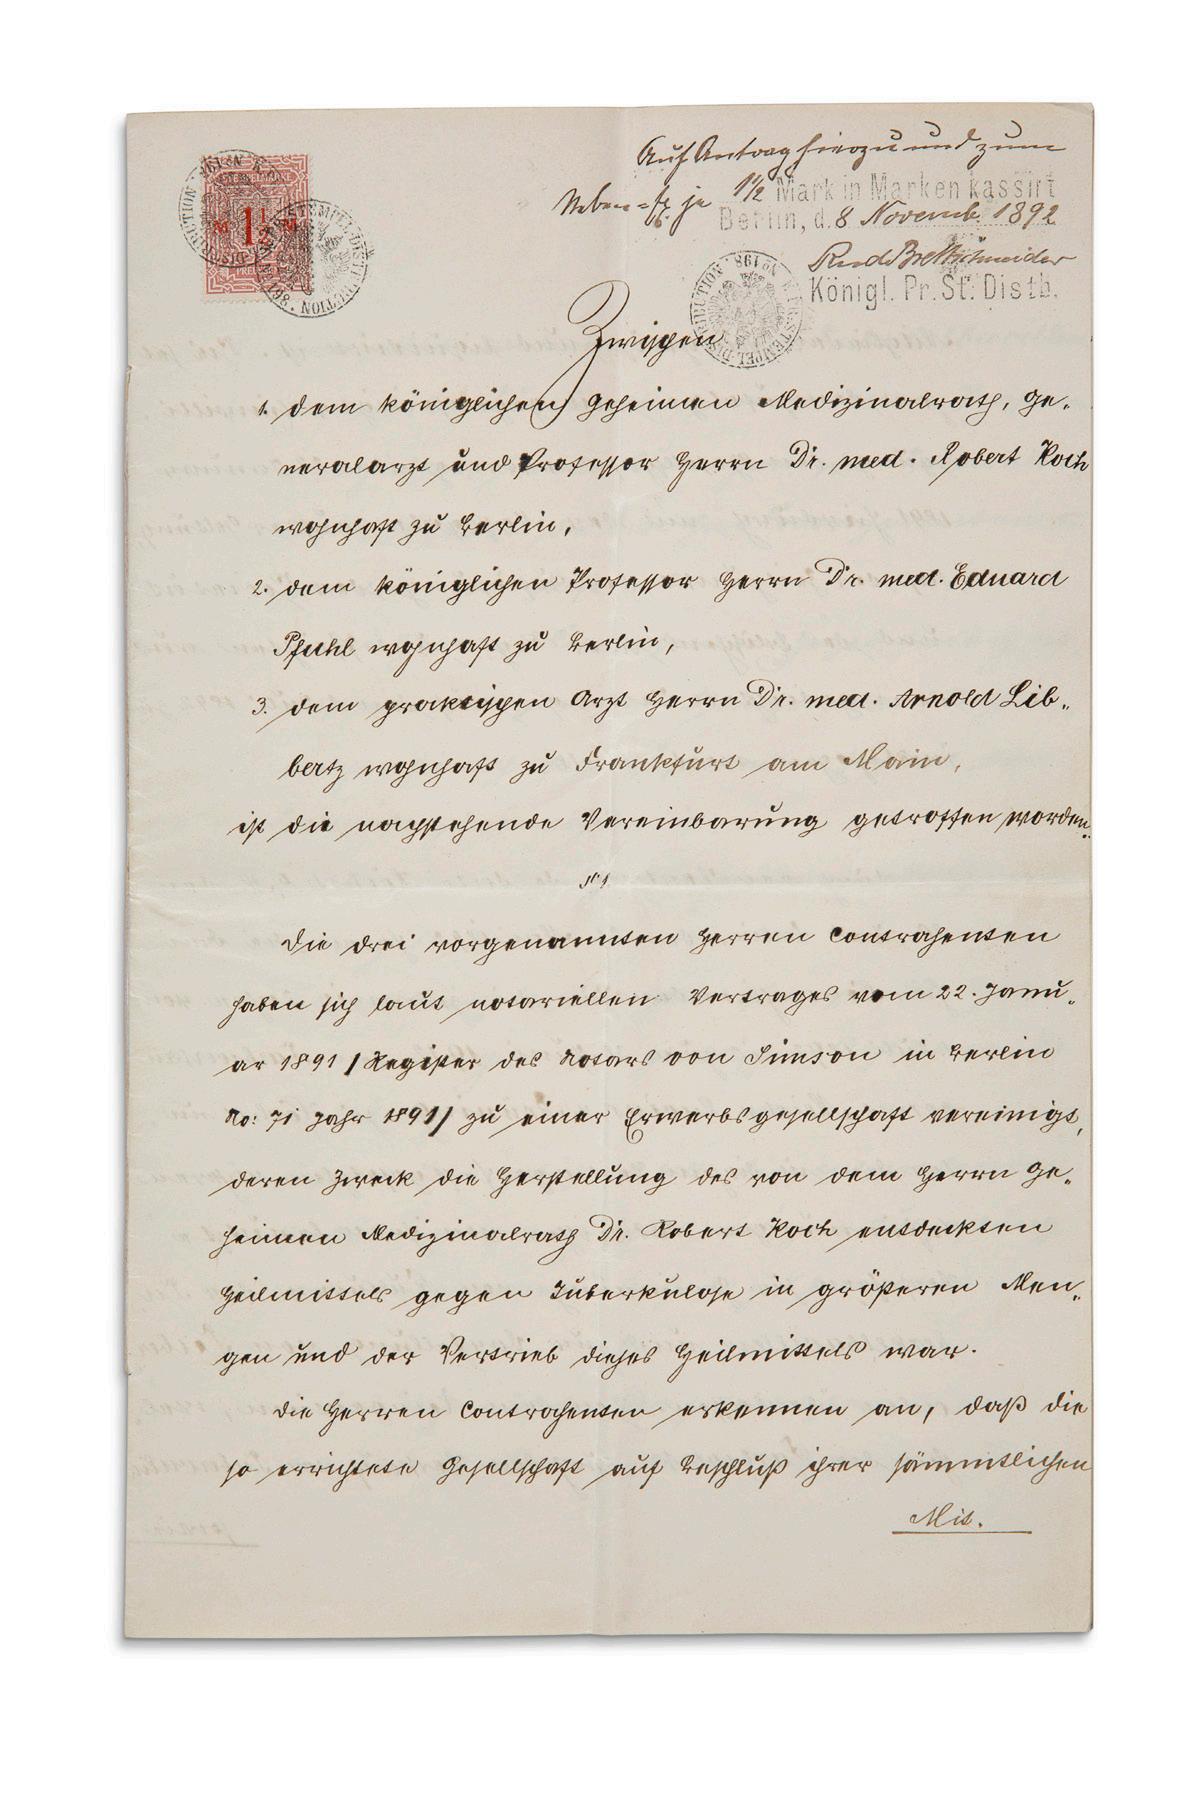 STEMPELMARKE
M 1½ M
PREUSSEN
Auf Antrag hierzu und zum
Neben-Ex. je 1½ Mark in Marken kassirt
Berlin, d. 8 Novemb. 1892
Rud Brettschneider
Königl. Pr. St. Distb.
Zwischen
1. dem königlichen Geheimen Medizinalrath, Ge-
neralarzt und Professor Herrn Dr. med. Robert Koch
wohnhaft zu Berlin,
2. dem königlichen Professor Herrn Dr. med. Eduard
Pfuhl wohnhaft zu Berlin,
3. dem praktischen Arzt Herrn Dr. med. Arnold Lib-
bertz wohnhaft zu Frankfurt am Main,
ist die nachstehende Vereinbarung getroffen worden.
§ 1.
Die drei vorgenannten Herren Contrahenten
haben sich laut notariellen Vertrages vom 22. Janu-
ar 1891 /Register des Notars von Simson in Berlin
No: 71 Jahr 1891/ zu einer Erwerbsgesellschaft vereinigt,
deren Zweck die Herstellung des von dem Herrn Ge-
heimen Medizinalrath Dr. Robert Koch entdeckten
Heilmittels gegen Tuberkulose in größeren Men-
gen und der Vertrieb dieses Heilmittels war.
Die Herren Contrahenten erkennen an, daß die
so errichtete Gesellschaft auf Beschluß ihrer sämmtlichen
Mit-